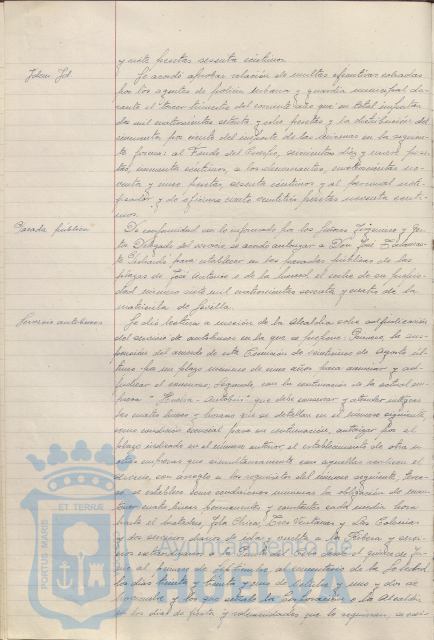 y siete pesetas sesenta céntimos.
Idem Id. Se acordó aprobar relación de multas efectivas cobradas
por los agentes de policía urbana y guardia municipal du-
rante el tercer trimestre del corriente año que en total importan
dos mil cuatrocientas setenta y ocho pesetas y la distribución del
cincuenta por ciento del importe de las mismas en la siguien-
te forma: al Fondo del Cuerpo, seiscientas diez y nueve pese-
tas, cincuenta céntimos, a los denunciantes, cuatrocientas no-
venta y cinco pesetas, sesenta céntimos y al personal
y de oficina ciento veintitrés pesetas noventa cénti-
mos.
Parada pública De conformidad con lo informado por los Señores Ingeniero y
Delegado del servicio se acordó autorizar a Don José
para establecer en las paradas públicas de las
plazas de José Antonio y de la Merced el coche de su propie-
dad número siete mil cuatrocientos sesenta y cuatro de la
matrícula de Sevilla.
Servicio autobuses Se dió lectura a moción de la Alcaldía sobre adjudicación
del servicio de autobuses en la que se propone: Primero, la sus-
pensión del acuerdo de esta Comisión de veintinueve de Agosto úl-
timo por un plazo máximo de un año para anunciar y ad-
judicar el concurso; Segundo, con la continuación de la actual em-
presa "Huelva-Autobús" que debe conservar y atender
las cuatro líneas y horario que se detallan en el número siguiente,
como condición esencial para su continuación, autorizar por el
plazo indicado en el número anterior, el establecimiento de otra u
otras empresas que simultáneamente con aquellas realicen el
servicio, con arreglo a los requisitos del número siguiente; Terce-
ro se establece como condiciones mínimas la obligación de man-
tener cuatro líneas permanentes y constantes cada media hora
hasta el Matadero, Isla Chica, Tres Ventanas y Las Colonias
y dos servicios diarios de ida y vuelta a la Ribera y servi-
cios extraordinarios a la Punta del Sebo desde el quince de Ju-
nio al primero de Septiembre, al cementerio de la Soledad
los días treinta y treinta y uno de Octubre y uno y dos de
Noviembre y los que señale la Corporación o la Alcaldía
en los días de fiesta y solemnidades que lo requieran,
Ayuntamiento de
HUELVA
PORTUS MARIS
ET TERRÆ